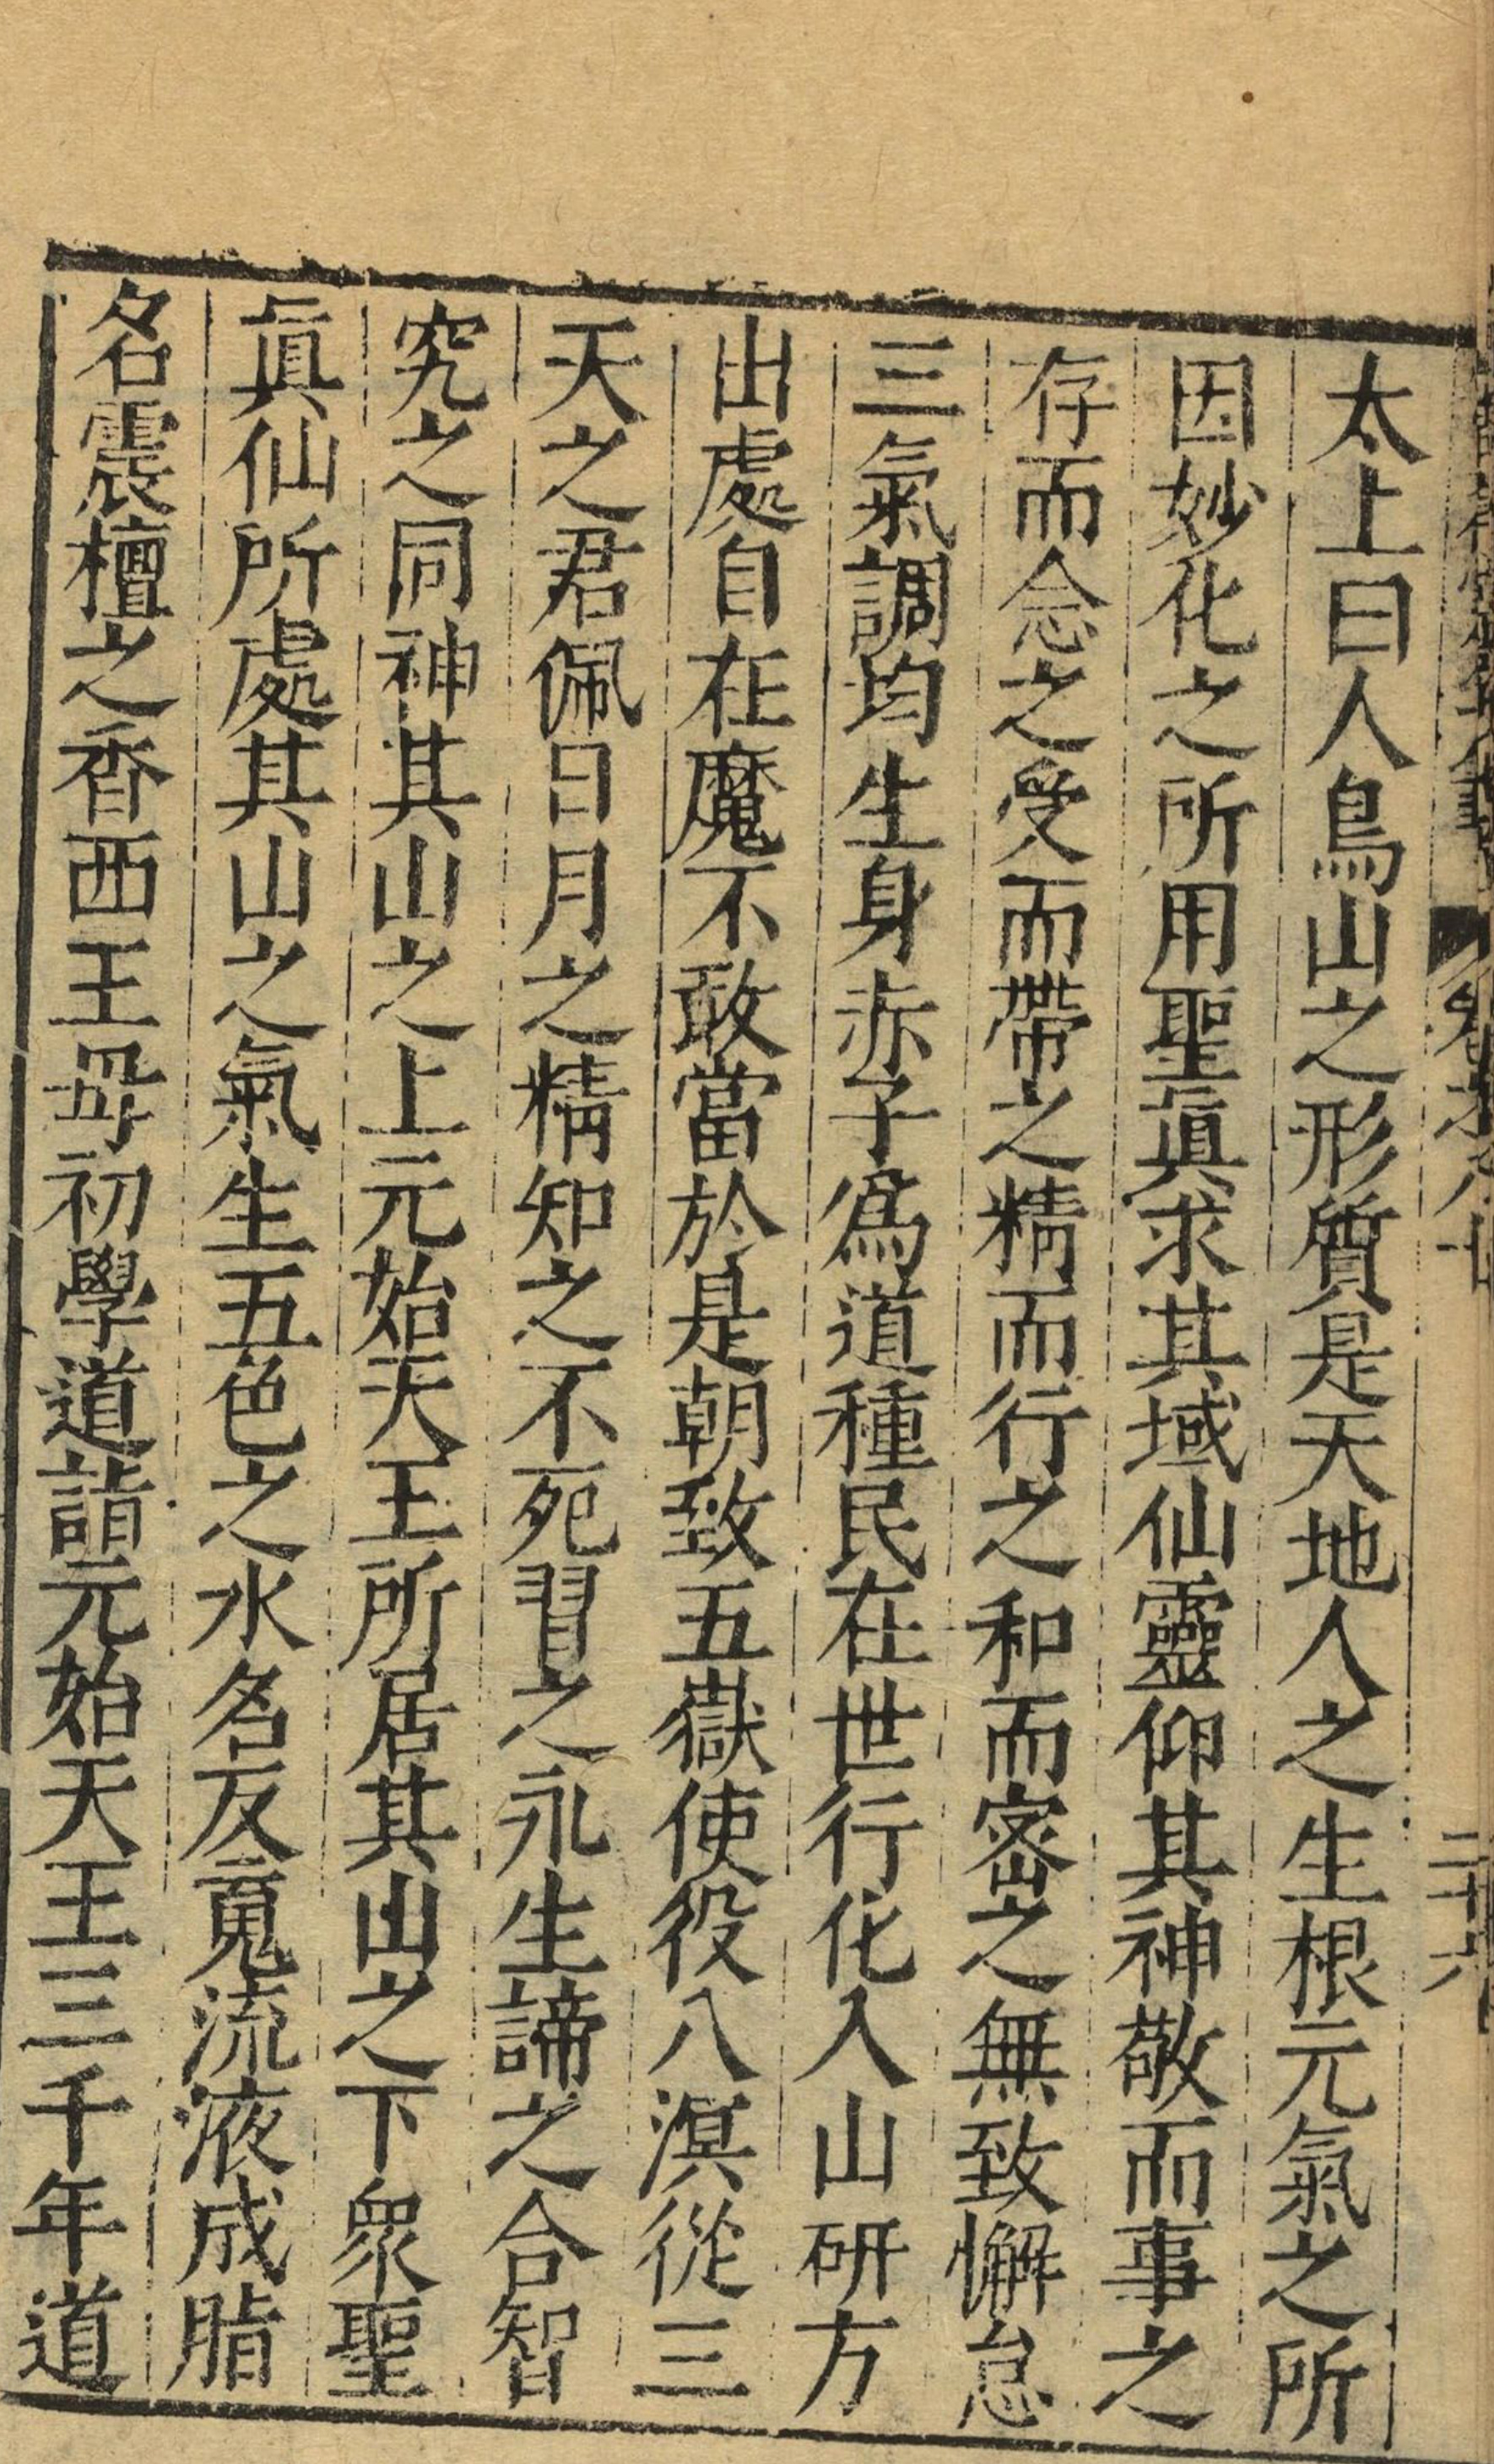 太上曰人鳥山之形質是天地人之生根元氣之所
因妙化之所用聖眞求其域仙靈仰其神敬而事之
存而念之受而帶之精而行之和而密之無致懈怠
三氣調均生身赤子爲道種民在世行化入山研方
出處自在魔不敢當於是朝致五嶽使役八溟從三
天之君佩日月之精知之不死習之永生諦之合智
究之同神其山之上元始天王所居其山之下衆聖
眞仙所處其山之氣生五色之水名反䰟流液成脂
名震檀之香西王母初學道詣元始天王三千年道
二十六